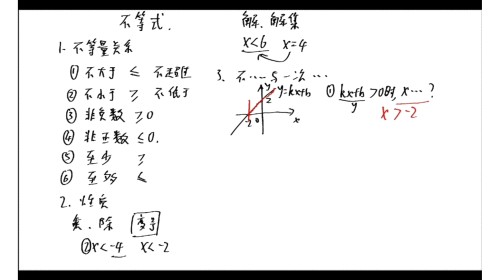 不等式.
1. 不等量关系
① 不大于 ≤ 不超过
② 不小于 ≥ 不低于
③ 非负数 ≥0
④ 非正数 ≤0.
⑤ 至少 ≥
⑥ 至多 ≤
2. 性质
乘.除 变号
②x<-4 x<-2
解.解集
x<6 x=4
3. 不……与一次…
y y=kx+b
2
-2 0 x
① kx+b>0时, x…?
y x>-2